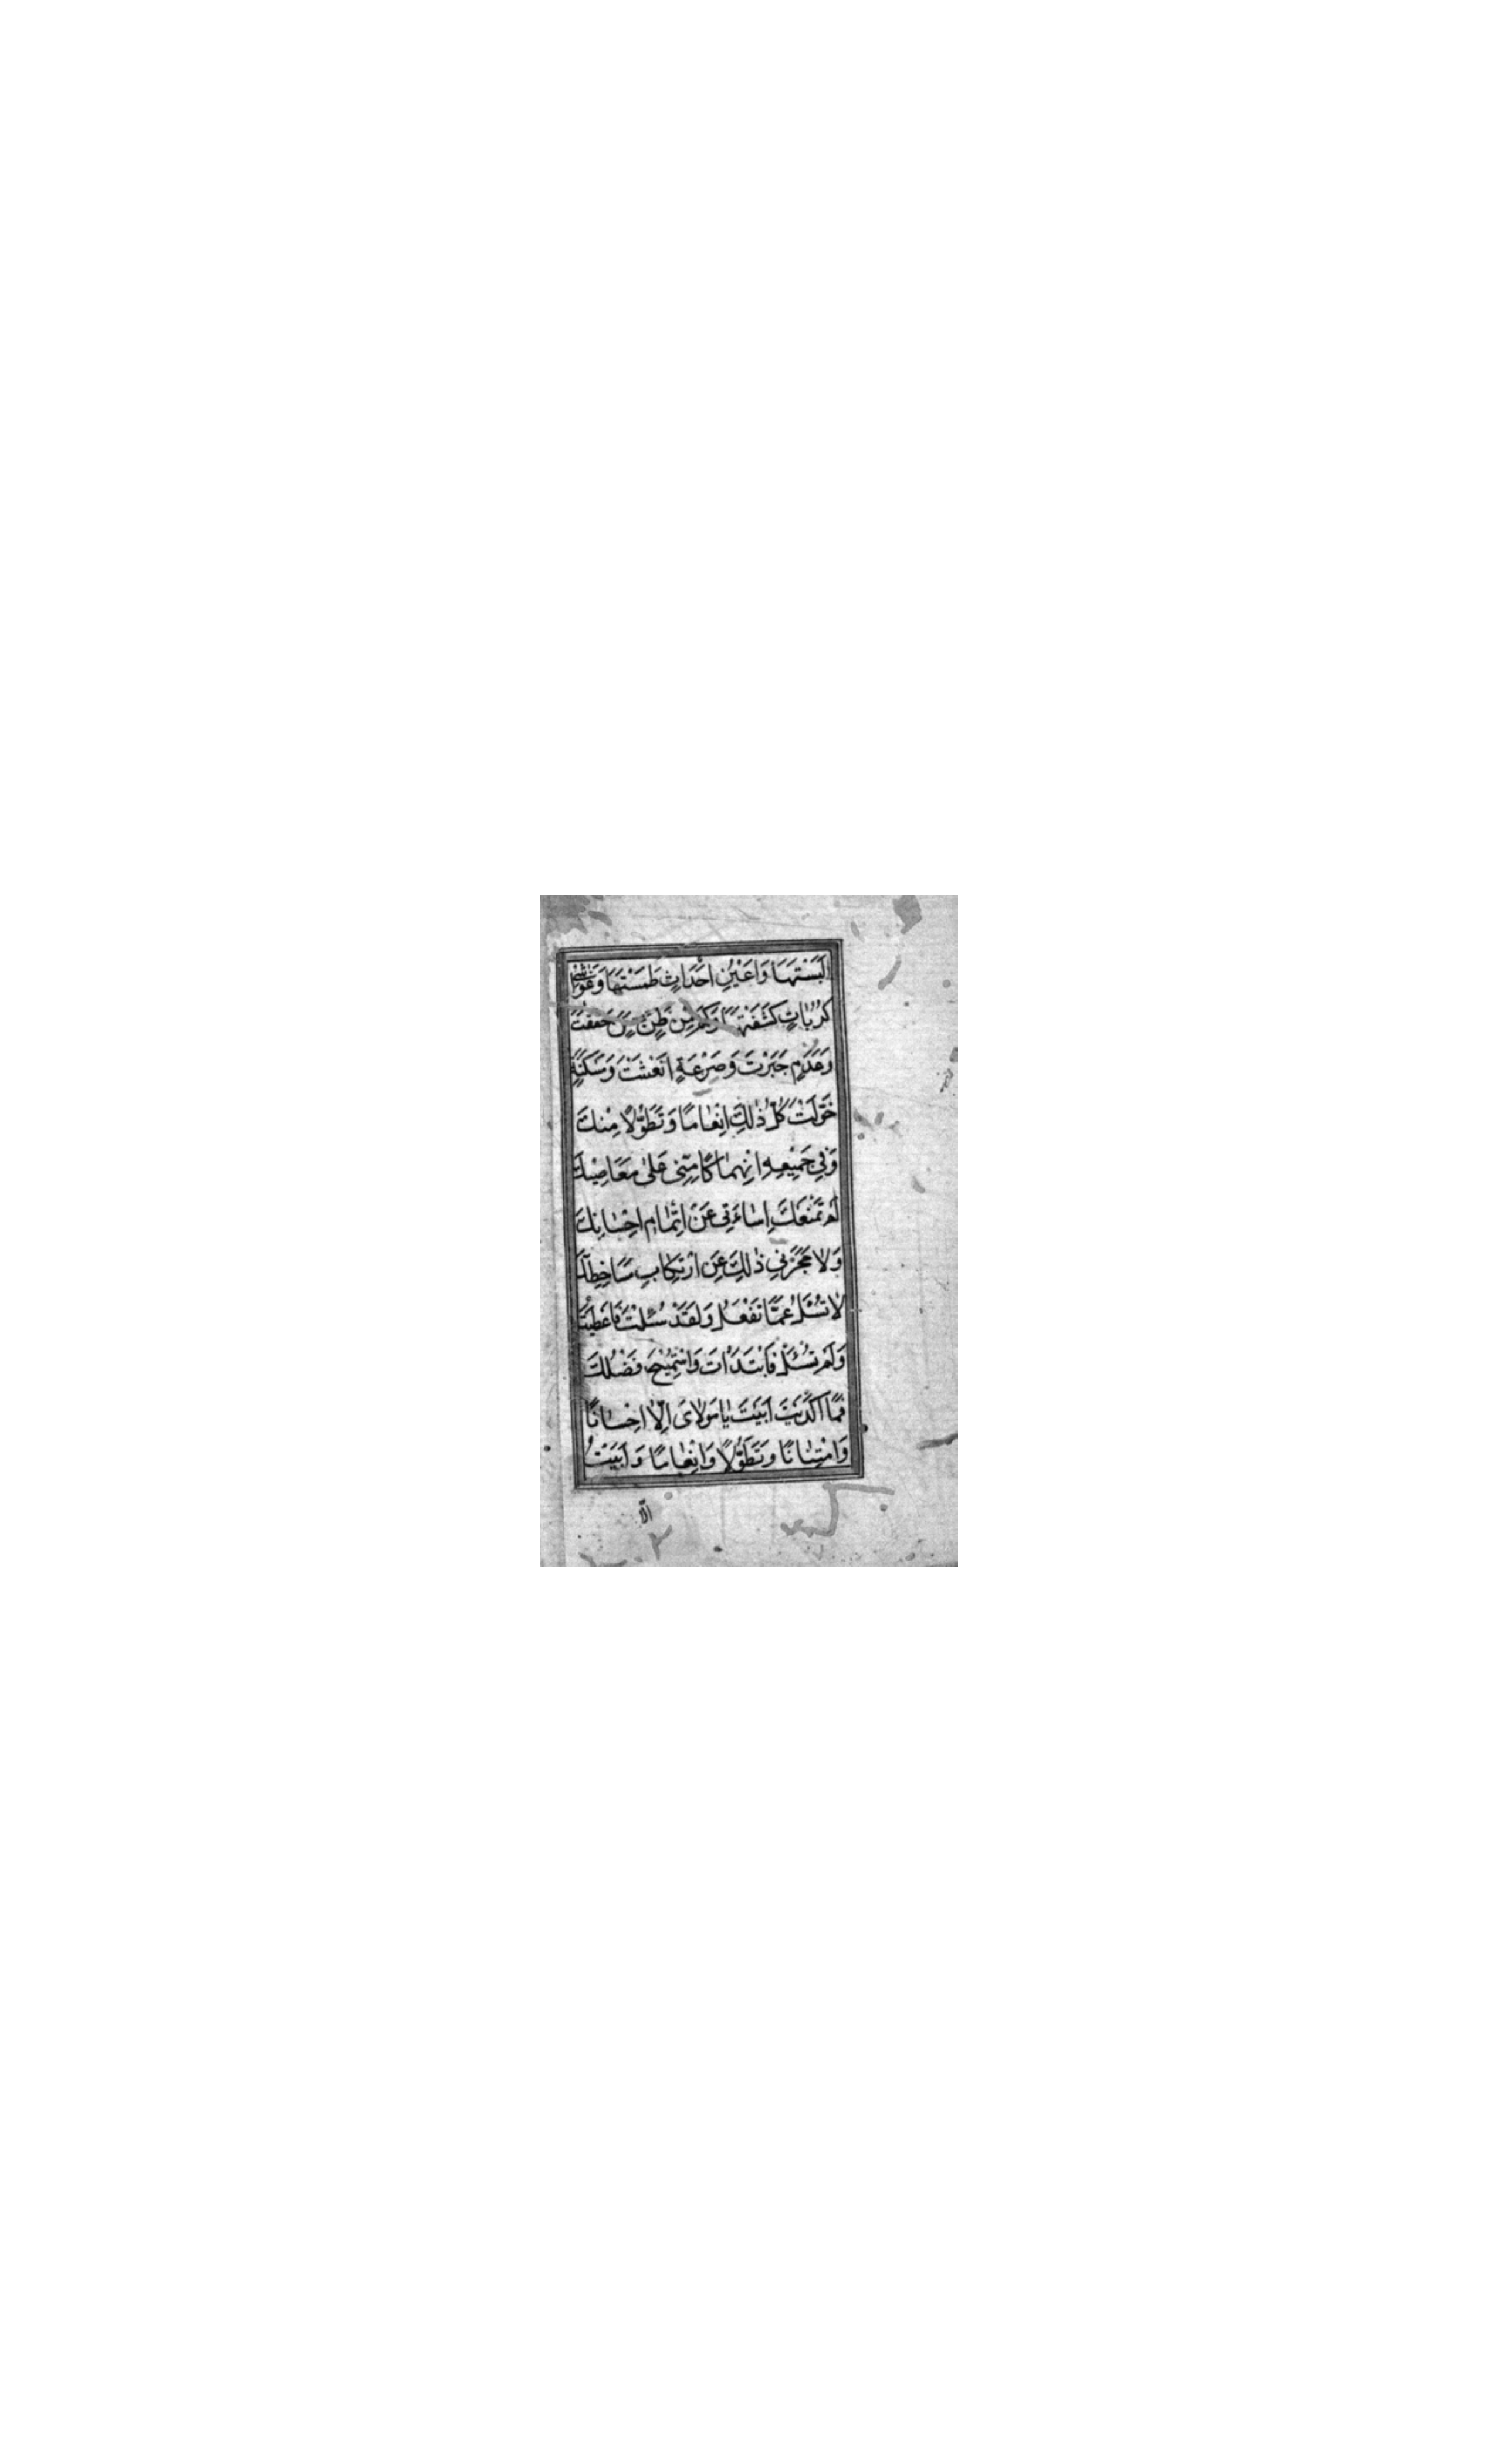 اَلْبَسْتَهَا وَاَعْيُنِ اَحْدَاثٍ طَمَسْتَهَا وَغَوَاشِيَ
كُرُبَاتٍ كَشَفْتَهَا وَكَمْ مِنْ ظَنٍّ حَسَنٍ حَقَّقْتَ
وَعَدَمٍ جَبَرْتَ وَصَرْعَةٍ اَنْعَشْتَ وَمَسْكَنَةٍ
حَوَّلْتَ كُلُّ ذٰلِكَ اِنْعَامًا وَتَطَوُّلًا مِنْكَ
وَفِي جَمِيْعِهِ انْهِمَاكًا مِنِّي عَلٰى مَعَاصِيْكَ
لَمْ تَمْنَعْكَ اِسَاءَتِي عَنْ اِتْمَامِ اِحْسَانِكَ
وَلَا حَجَزَنِي ذٰلِكَ عَنِ ارْتِكَابِ مَسَاخِطِكَ
لَا تُسْئَلُ عَمَّا تَفْعَلُ وَلَقَدْ سُئِلْتَ فَاَعْطَيْتَ
وَلَمْ تُسْئَلْ فَابْتَدَاْتَ وَاسْتُمِيْحَ فَضْلُكَ
فَمَا اَكْدَيْتَ اَبَيْتَ يَا مَوْلَايَ اِلَّا اِحْسَانًا
وَامْتِنَانًا وَتَطَوُّلًا وَاِنْعَامًا وَاَبَيْتُ
اِلَّا